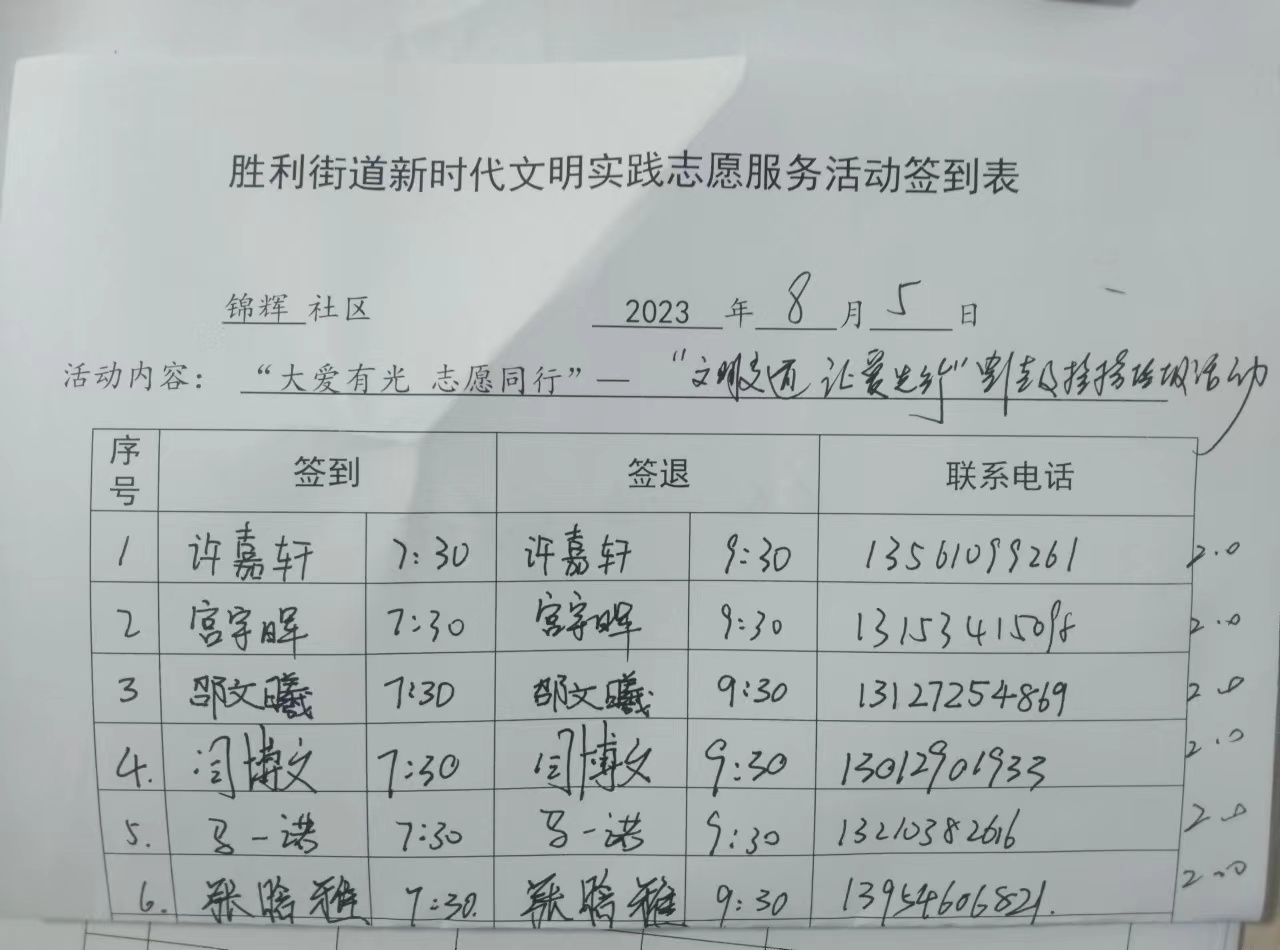 胜利街道新时代文明实践志愿服务活动签到表
锦辉 社区 2023 年 8 月 5 日
活动内容： “大爱有光 志愿同行”— “文明交通 让爱先行”宣传及捡拾垃圾活动
序号 签到 签退 联系电话
1 许嘉轩 7:30 许嘉轩 9:30 13561099261 2.0
2 宫宇晖 7:30 宫宇晖 9:30 13153415098 2.0
3 邵文曦 7:30 邵文曦 9:30 13127254869 2.0
4. 闫博文 7:30 闫博文 9:30 13012901933 2.0
5. 马一诺 7:30 马一诺 9:30 13210382616 2.0
6. 张晗雅 7:30. 张晗雅 9:30 13954606821. 2.0